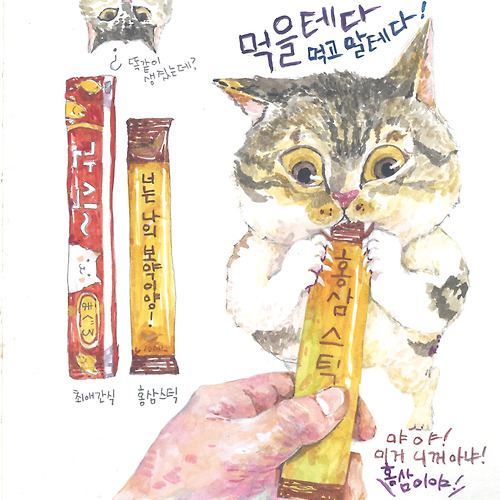 먹을테다
먹고 말테다!
?
똑같이
생겼는데?
너는 나의 보약이양~!
홍삼스틱
최애간식
홍삼스틱
まぐろ
먀야!
이거 니꺼아냐!
홍삼이야!